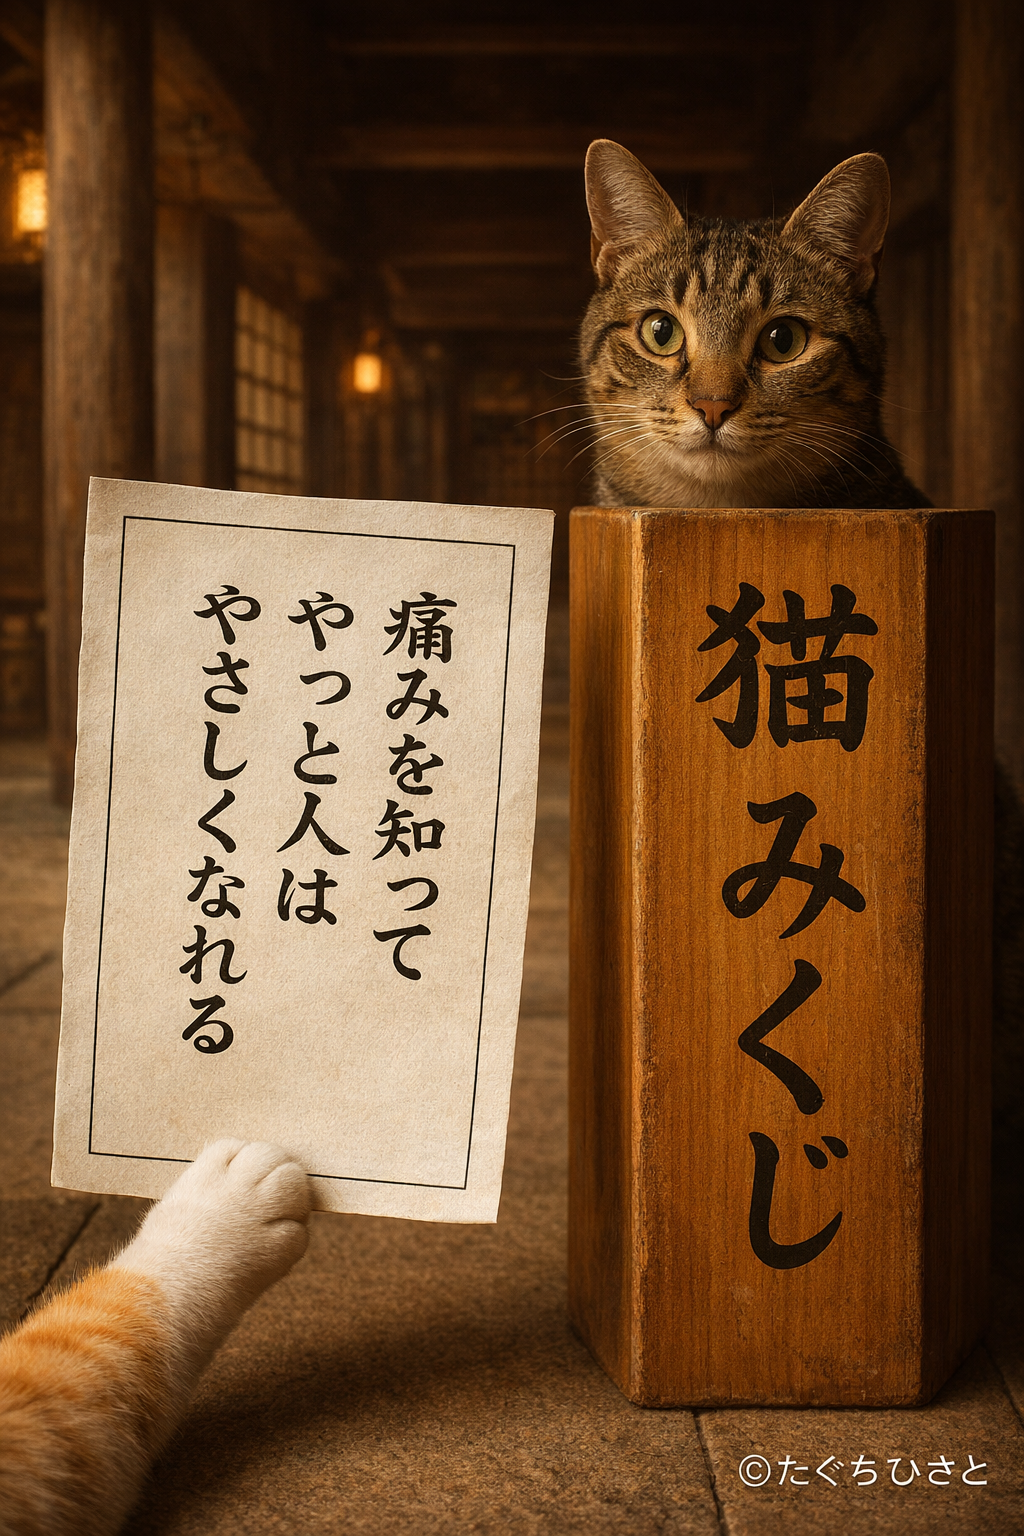 痛みを知って
やっと人は
やさしくなれる
猫みくじ
©たぐちひさと